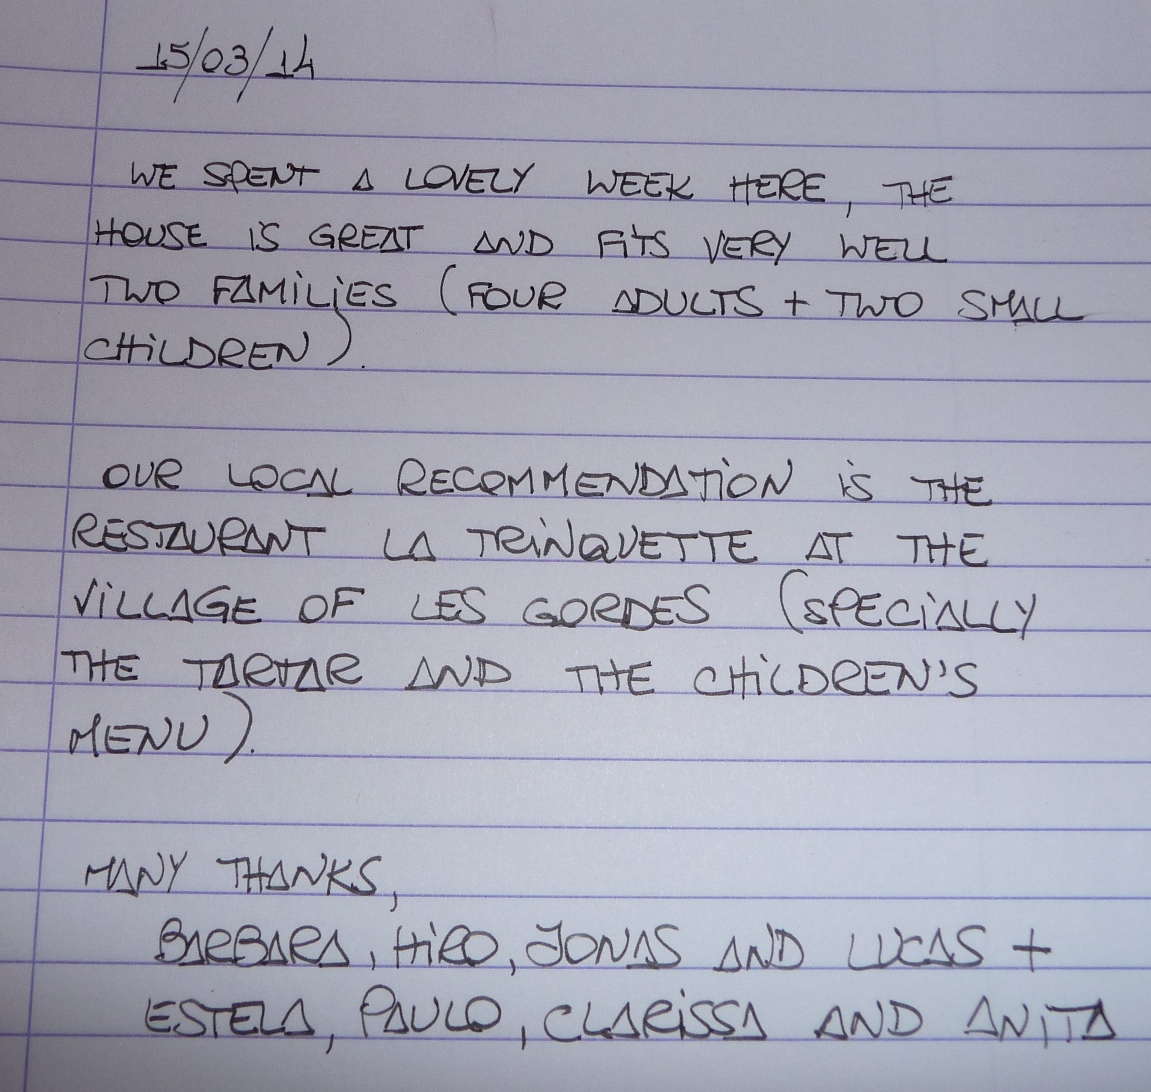 15/03/14
WE SPENT A LOVELY WEEK HERE, THE
HOUSE IS GREAT AND FITS VERY WELL
TWO FAMILIES (FOUR ADULTS + TWO SMALL
CHILDREN).
OUR LOCAL RECOMMENDATION IS THE
RESTAURANT LA TRINQUETTE AT THE
VILLAGE OF LES GORDES (SPECIALLY
THE TARTAR AND THE CHILDREN'S
MENU).
MANY THANKS,
BARBARA, HIRO, JONAS AND LUCAS +
ESTELA, PAULO, CLARISSA AND ANITA